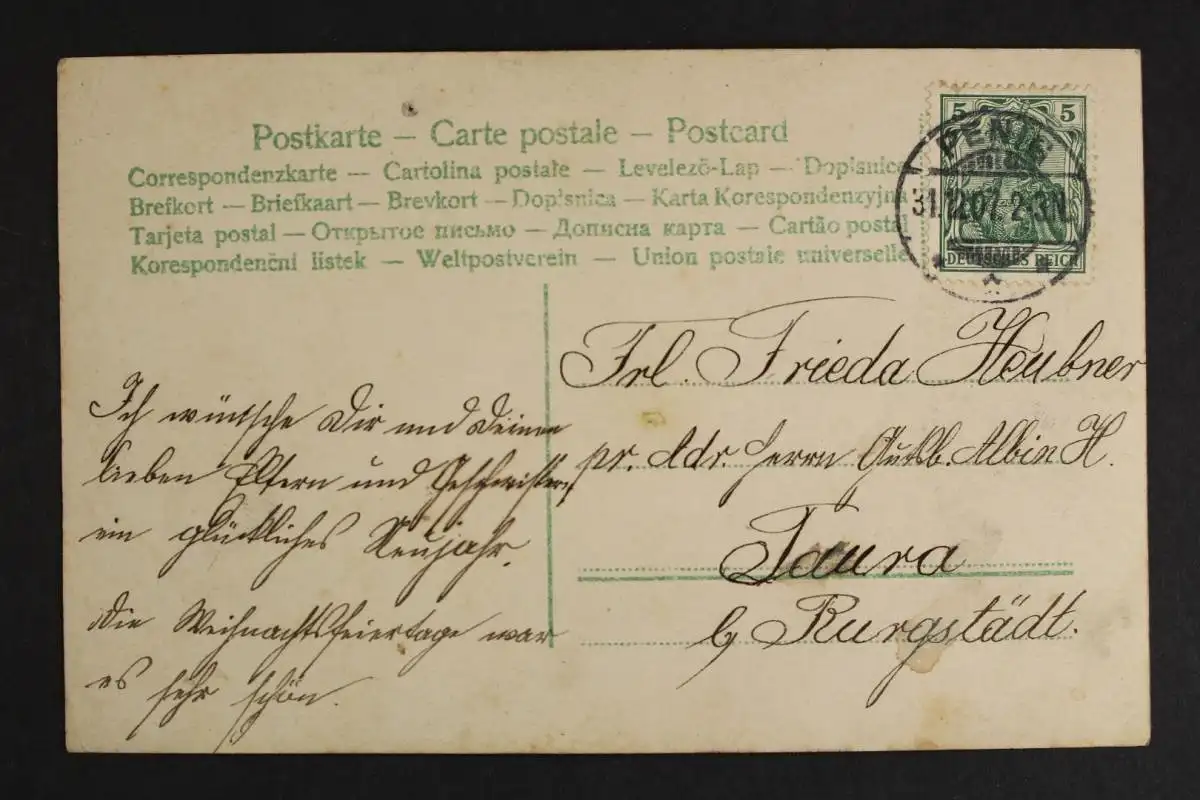 Postkarte – Carte postale – Postcard
Correspondenzkarte — Cartolina postale — Levelező-Lap — Dopisnica
Brefkort — Briefkaart — Brevkort — Dopisnica — Karta Korespondenzyjna
Tarjeta postal — Открытое письмо — Дописна карта — Cartão postal
Korespondenční listek — Weltpostverein — Union postale universelle
5 5
PENIG
31.12.07. 2-3N.
DEUTSCHES REICH
Ich wünsche Dir und Deinen
lieben Eltern und Geschwistern
ein glückliches Neujahr.
Die Weihnachtsfeiertage war
es sehr schön.
Frl. Frieda Heubner
pr. Adr. Herrn Gutsb. Albin H.
Taura
b/ Burgstädt.